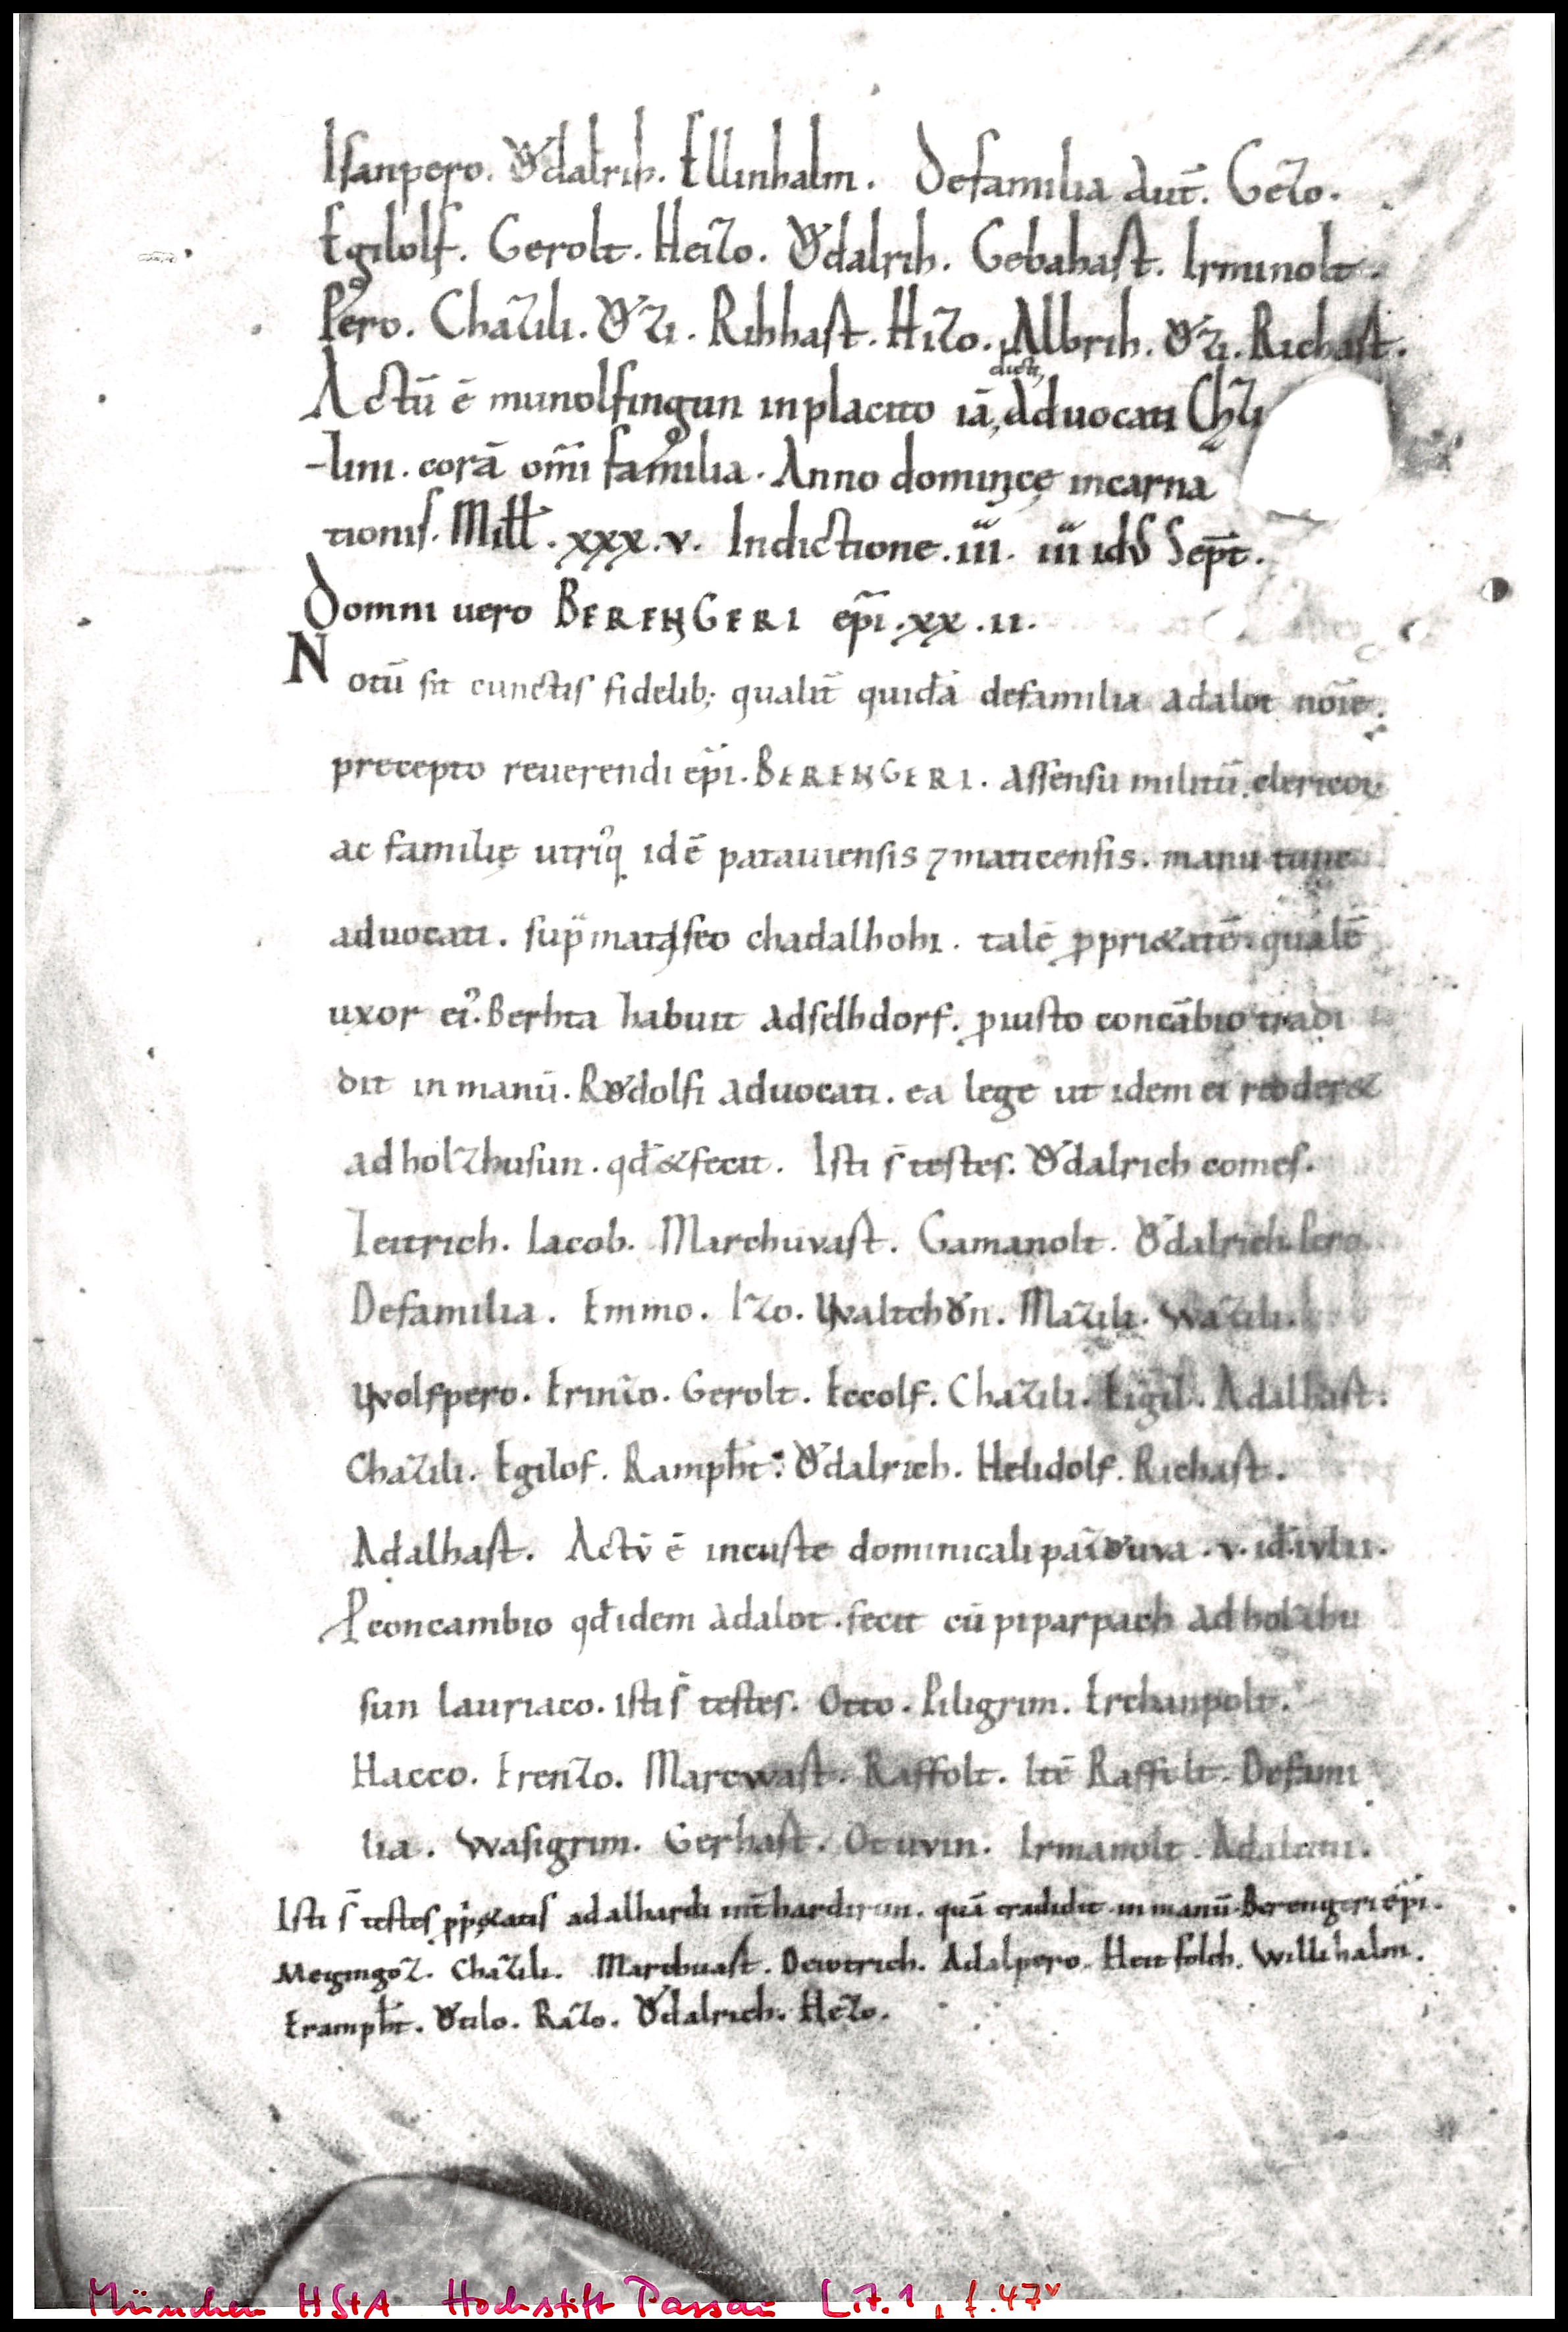 Isanpero. Ŏdalrih. Ellinhalm. Defamilia aut̄. Gezo.
Egilolf. Gerolt. Heizo. Ŏdalrih. Gebahast. Irminolt.
Pero. Chazili. Ŏzi. Rihhast. Hizo. Albrih. Ŏzi. Richast.
Actū ē munolfingun inplacito iā dicti, aduocati Chzi
-lini. corā om̄i familia. Anno dominicę incarna
tionis. Mill̄. xxx.v. Indictione. iii. iii idus Sept̄.
Domni uero BERENGERI ep̄i. xx.ii.
Notū sit cunctis fidelib; qualit̄ quidā defamilia adalot noīe.
precepto reuerendi ep̄i. BERENGERI. assensu militū. clericoꝝ
ac familię utriq idē patauiensis ⁊ maticensis. manu tunc
aduocati. sup̄ matahseo chadalhohi. talē ꝓpri&atē. qualē
uxor ei᾿. Berhta habuit adselhdorf. ꝓiusto concābio tradi
dit inmanū. Rŏdolfi aduocati. ea lege ut idem ei redder&
ad holzhusun. qd̄ & fecit. Isti s̄ testes. Ŏdalrich comes.
Ieitrich. Iacob. Marchuuast. Gamanolt. Ŏdalrich. Pero.
Defamilia. Emmo. Izo. VValtchŏn. Mazili. Wazili.
VVolfpero. Erinzo. Gerolt. Eccolf. Chazili. Eigil. Adalhast.
Chazili. Egilof. Rampħt. Ŏdalrich. Helidolf. Richast.
Adalhast. Actv̄ ē incuste dominicali pazŏuua. v. id̄. ivlii.
Pconcambio qd̄ idem adalot. fecit cū piparpach ad holzhu
sun lauriaco. isti s̄ testes. Otto. Piligrim. Erchanpolt.
Hacco. Erenzo. Marcwast. Raffolt. Itē Raffolt. Defami
lia. Wasigrim. Gerhast. Otuvin. Irmanolt.
Isti s̄ testes ꝓp&atis adalhardi int̄ hardirun. quā tradidit inmanū Berengeri ep̄i.
Megingoz. Chazili. Marchuast. Deiotrich. Adalpero. Heitfolch. Willihalm.
Erampħt. Ŏtilo. Razo. Ŏdalrich. Hezo.
München HStA Hochstift Passau L.7.1, f.47v